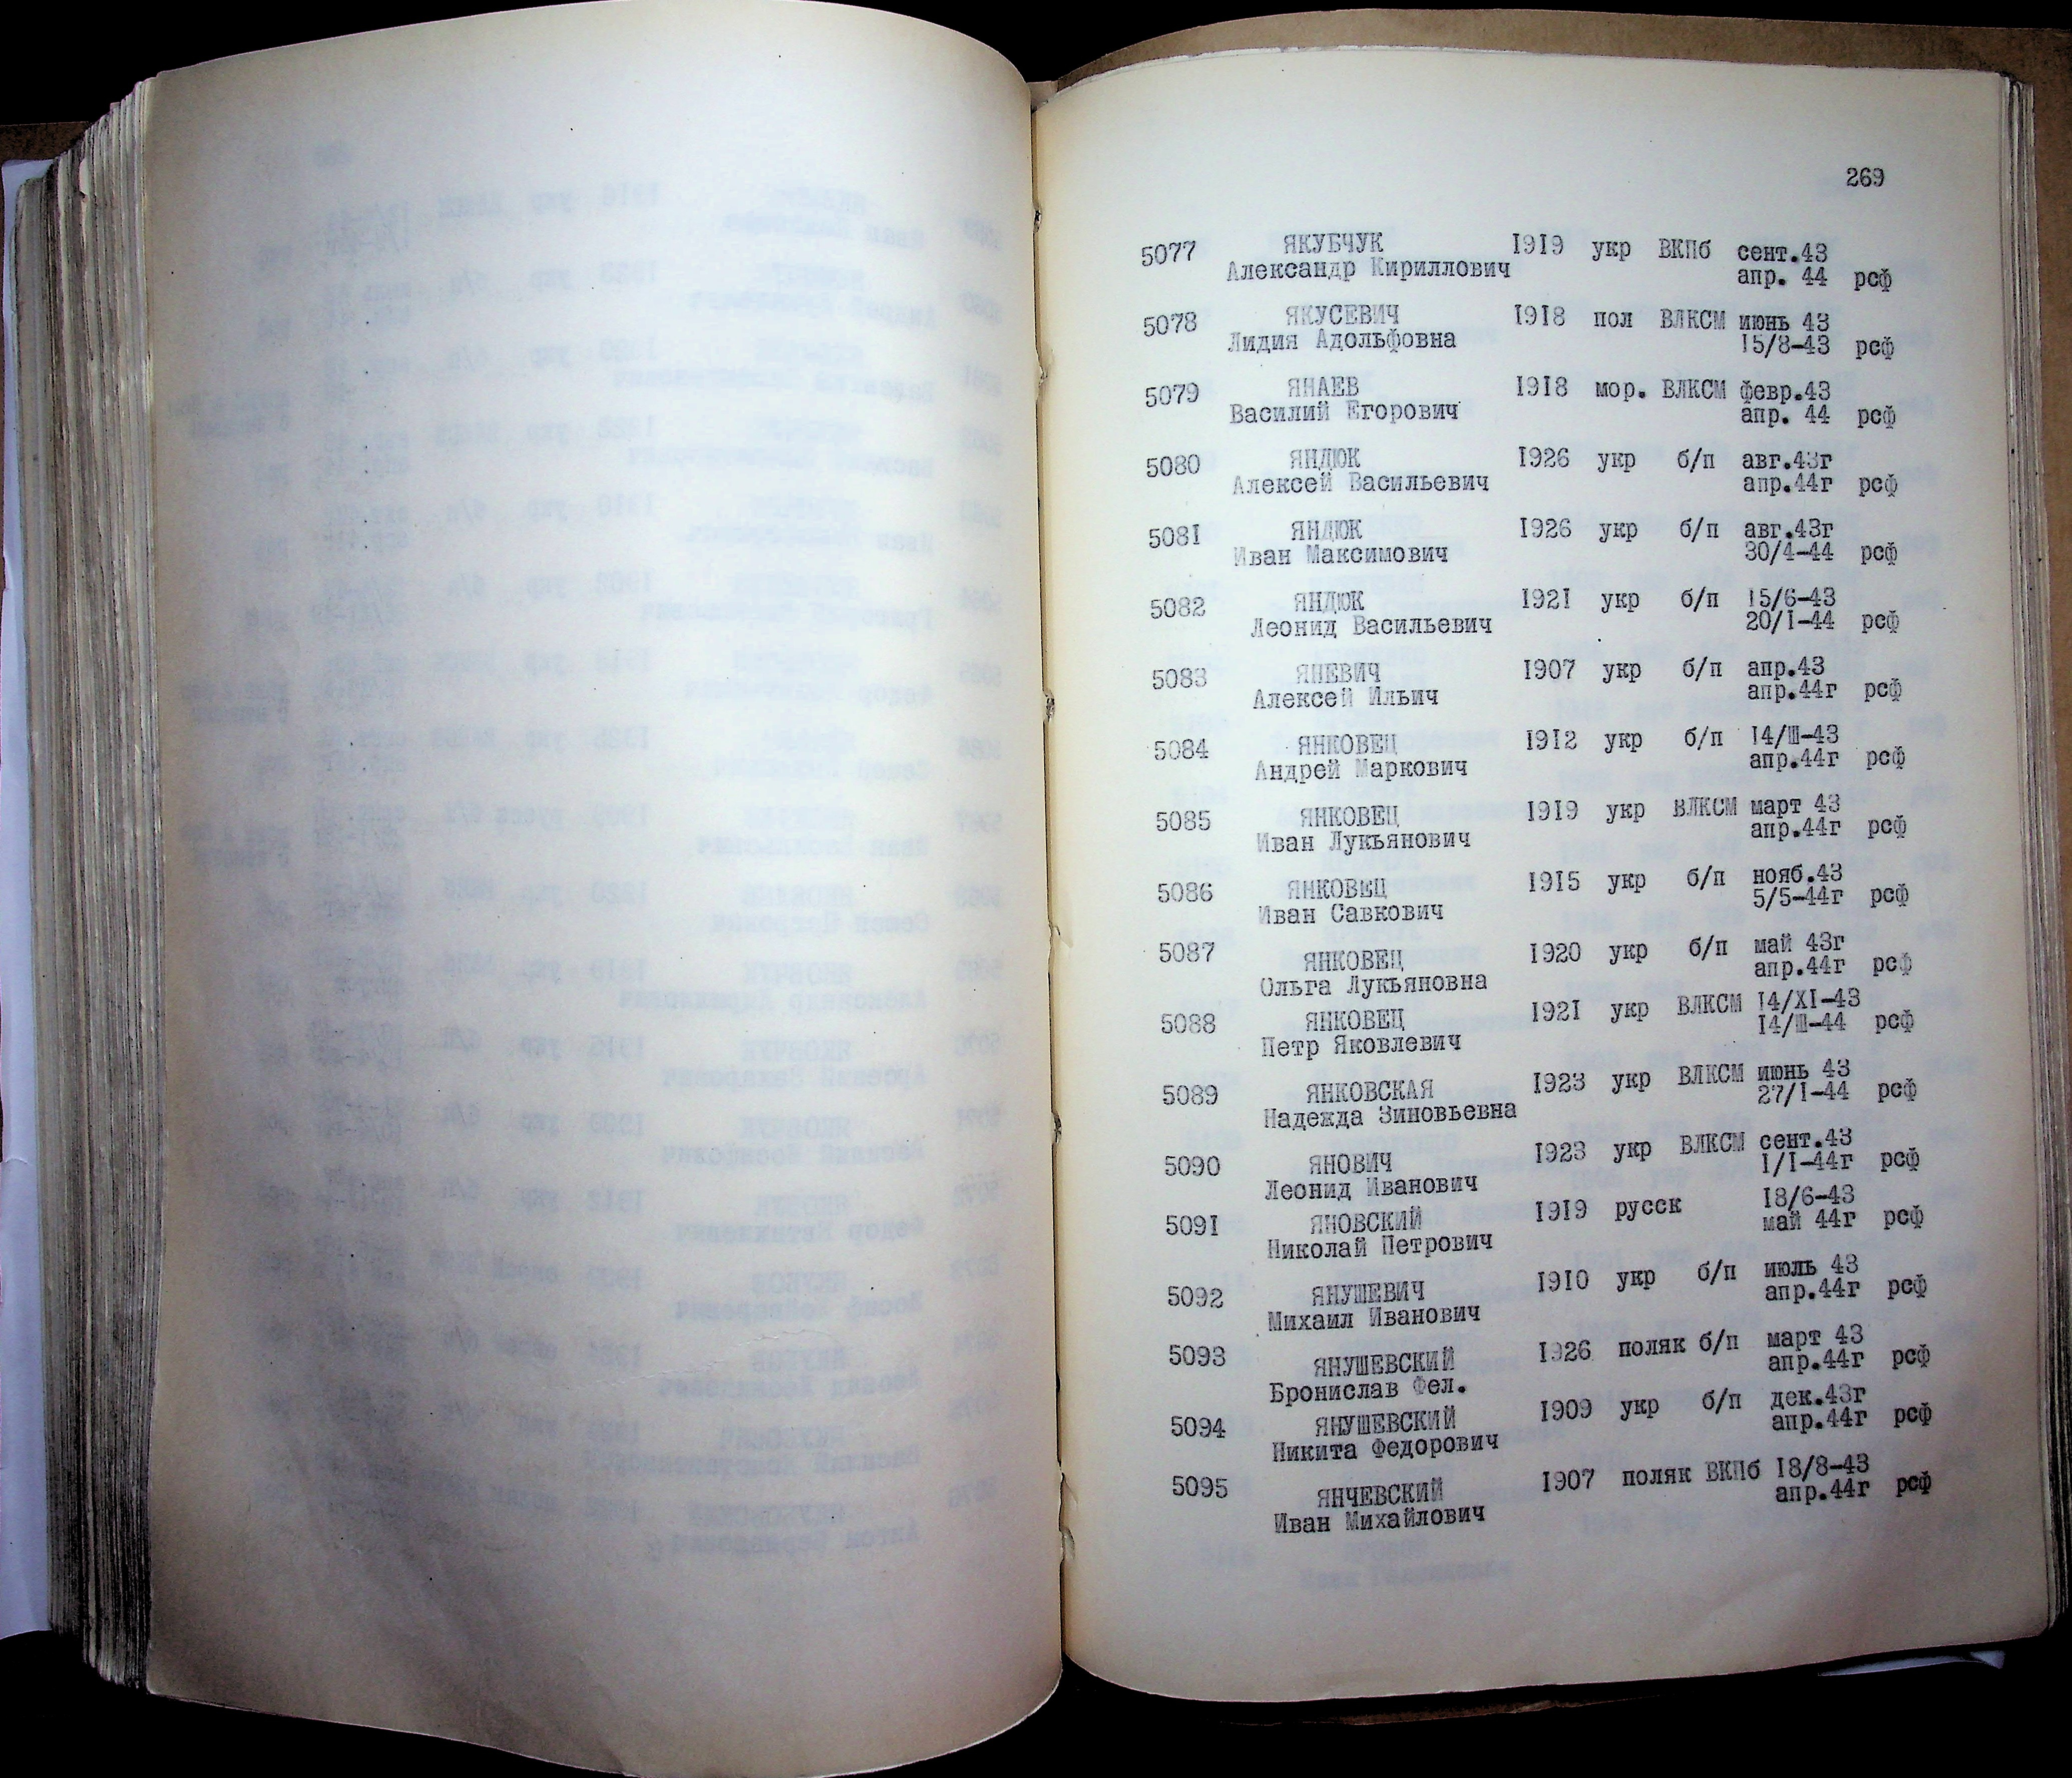 269
5077 ЯКУБЧУК 1919 укр ВКПб сент.43
Александр Кириллович апр. 44 рсф
5078 ЯКУСЕВИЧ 1918 пол ВЛКСМ июнь 43
Лидия Адольфовна 15/8-43 рсф
5079 ЯНАЕВ 1918 мор. ВЛКСМ февр.43
Василий Егорович апр. 44 рсф
5080 ЯНДЮК 1926 укр б/п авг.43г
Алексей Васильевич апр.44г рсф
5081 ЯНДЮК 1926 укр б/п авг.43г
Иван Максимович 30/4-44 рсф
5082 ЯНДЮК 1921 укр б/п 15/6-43
Леонид Васильевич 20/I-44 рсф
5083 ЯНЕВИЧ 1907 укр б/п апр.43
Алексей Ильич апр.44г рсф
5084 ЯНКОВЕЦ 1912 укр б/п 14/Ш-43
Андрей Маркович апр.44г рсф
5085 ЯНКОВЕЦ 1919 укр ВЛКСМ март 43
Иван Лукьянович апр.44г рсф
5086 ЯНКОВЕЦ 1915 укр б/п нояб.43
Иван Савкович 5/5-44г рсф
5087 ЯНКОВЕЦ 1920 укр б/п май 43г
Ольга Лукьяновна апр.44г рсф
5088 ЯНКОВЕЦ 1921 укр ВЛКСМ 14/XI-43
Петр Яковлевич 14/Ш-44 рсф
5089 ЯНКОВСКАЯ 1923 укр ВЛКСМ июнь 43
Надежда Зиновьевна 27/I-44 рсф
5090 ЯНОВИЧ 1923 укр ВЛКСМ сент.43
Леонид Иванович I/I-44г рсф
5091 ЯНОВСКИЙ 1919 русск 18/6-43
Николай Петрович май 44г рсф
5092 ЯНУШЕВИЧ 1910 укр б/п июль 43
Михаил Иванович апр.44г рсф
5093 ЯНУШЕВСКИЙ 1926 поляк б/п март 43
Бронислав Фел. апр.44г рсф
5094 ЯНУШЕВСКИЙ 1909 укр б/п дек.43г
Никита Федорович апр.44г рсф
5095 ЯНЧЕВСКИЙ 1907 поляк ВКПб 18/8-43
Иван Михайлович апр.44г рсф